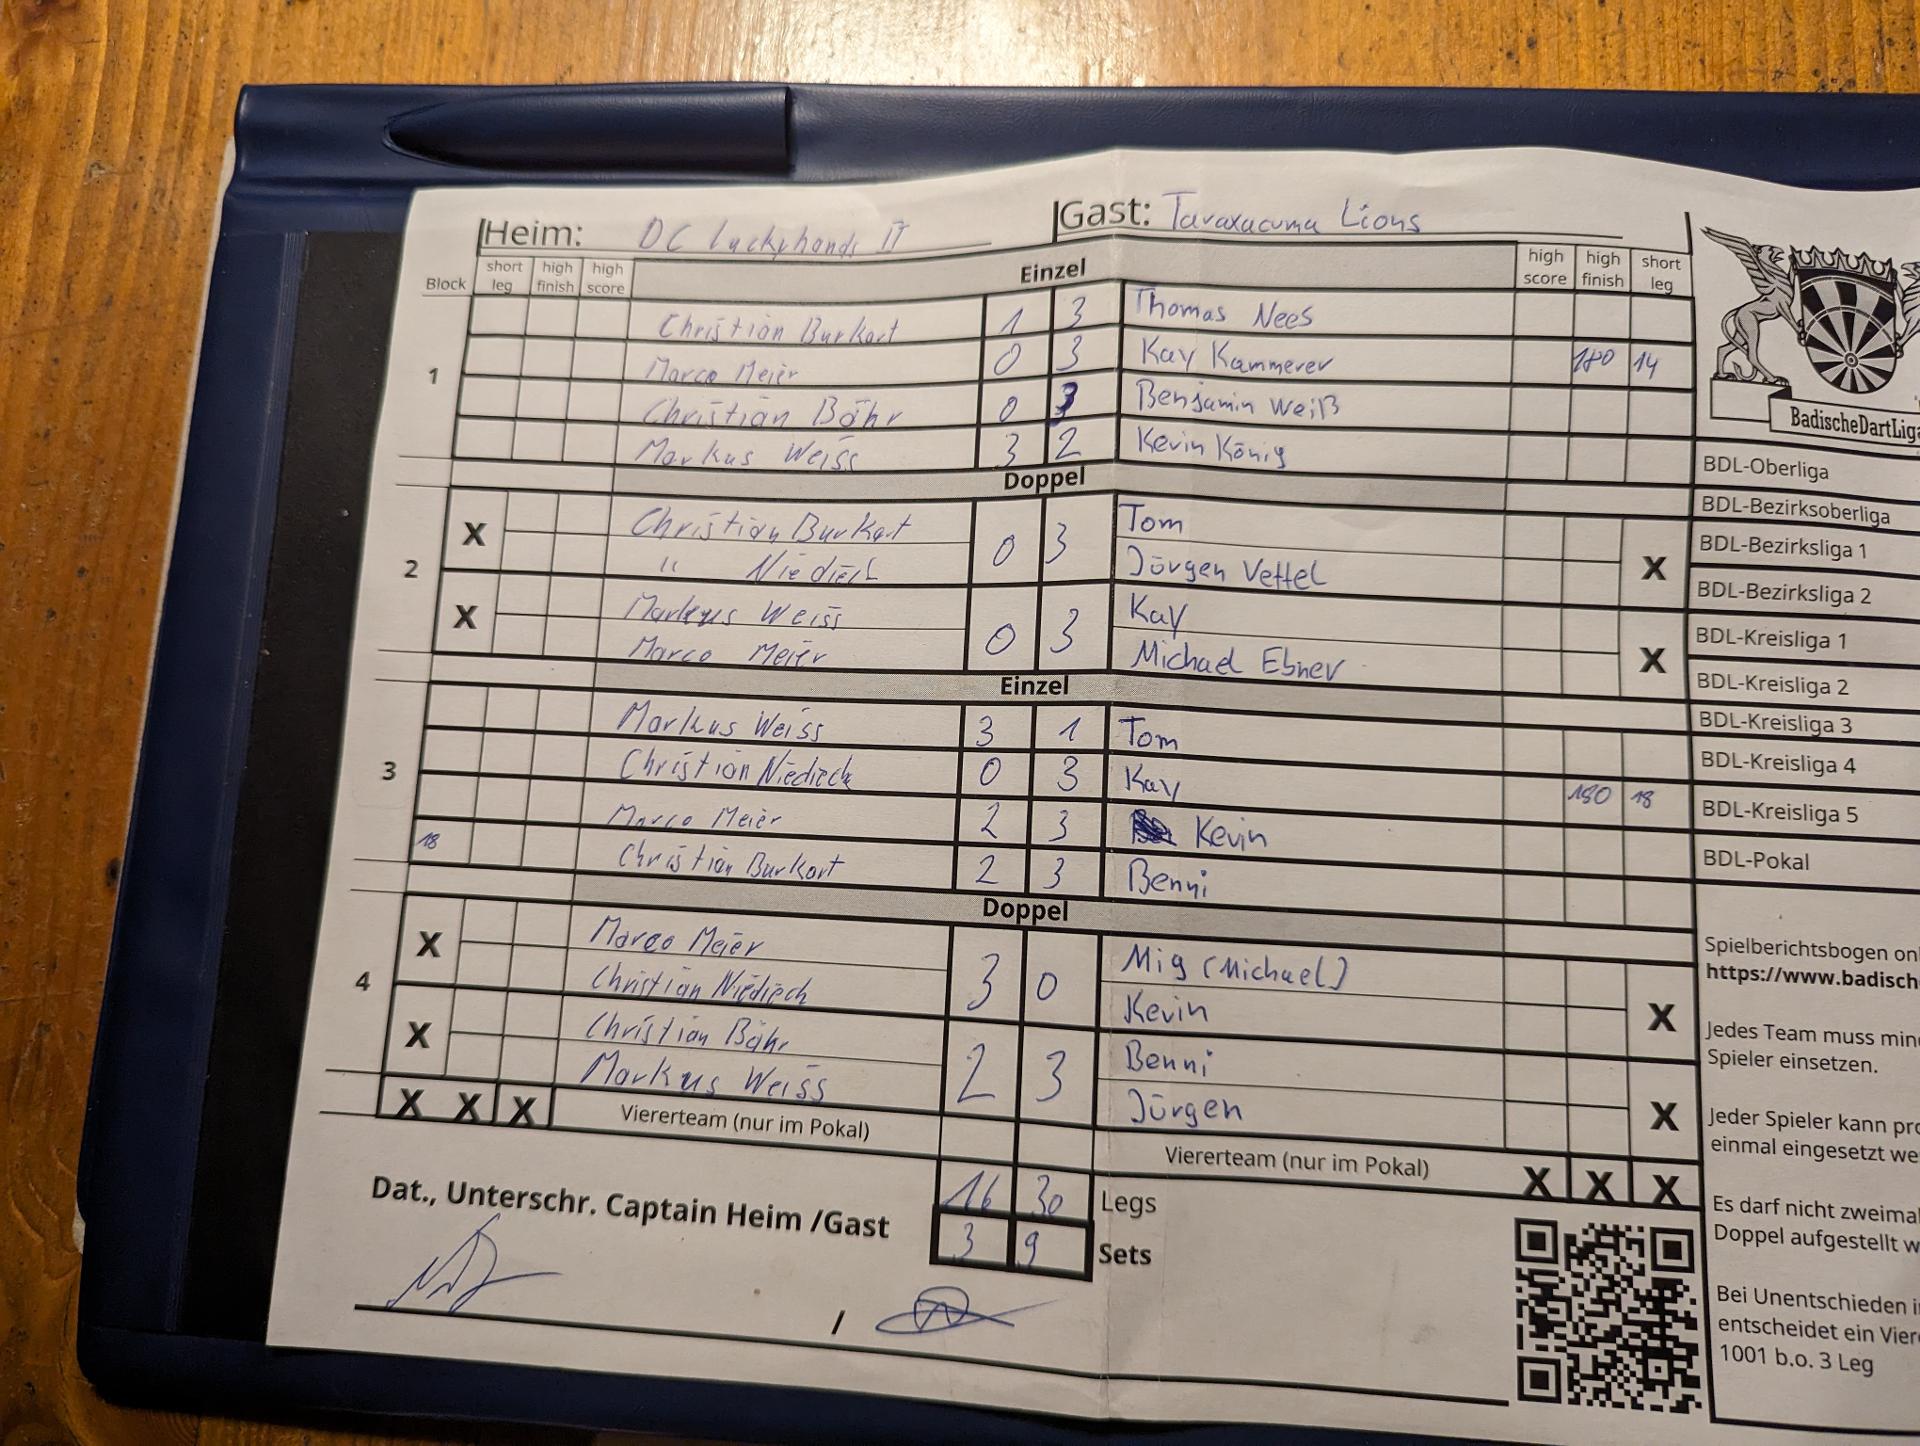 Heim: DC Luckyhands II Gast: Taraxacuma Lions
Block short leg high finish high score Einzel high score high finish short leg
1
Christian Burkart 1 3 Thomas Nees
Marco Meier 0 3 Kay Kammerer 180 14
Christian Bähr 0 3 Benjamin Weiß
Markus Weiss 3 2 Kevin König
Doppel
2
X Christian Burkart 0 3 Tom
" Niedieck Jürgen Vettel X
X Markus Weiss 0 3 Kay
Marco Meier Michael Ebner X
Einzel
3
Markus Weiss 3 1 Tom
Christian Niedieck 0 3 Kay 180 18
Marco Meier 2 3 Kevin
18 Christian Burkart 2 3 Benni
Doppel
4
X Marco Meier 3 0 Mig (Michael)
Christian Niedieck Kevin X
X Christian Bähr 2 3 Benni
Markus Weiss Jürgen X
X X X Viererteam (nur im Pokal) Viererteam (nur im Pokal) X X X
16 30 Legs
3 9 Sets
Dat., Unterschr. Captain Heim /Gast
/
BadischeDartLiga
BDL-Oberliga
BDL-Bezirksoberliga
BDL-Bezirksliga 1
BDL-Bezirksliga 2
BDL-Kreisliga 1
BDL-Kreisliga 2
BDL-Kreisliga 3
BDL-Kreisliga 4
BDL-Kreisliga 5
BDL-Pokal
Spielberichtsbogen onl
https://www.badisch
Jedes Team muss min
Spieler einsetzen.
Jeder Spieler kann pro
einmal eingesetzt we
Es darf nicht zweimal
Doppel aufgestellt w
Bei Unentschieden i
entscheidet ein Vier
1001 b.o. 3 Leg